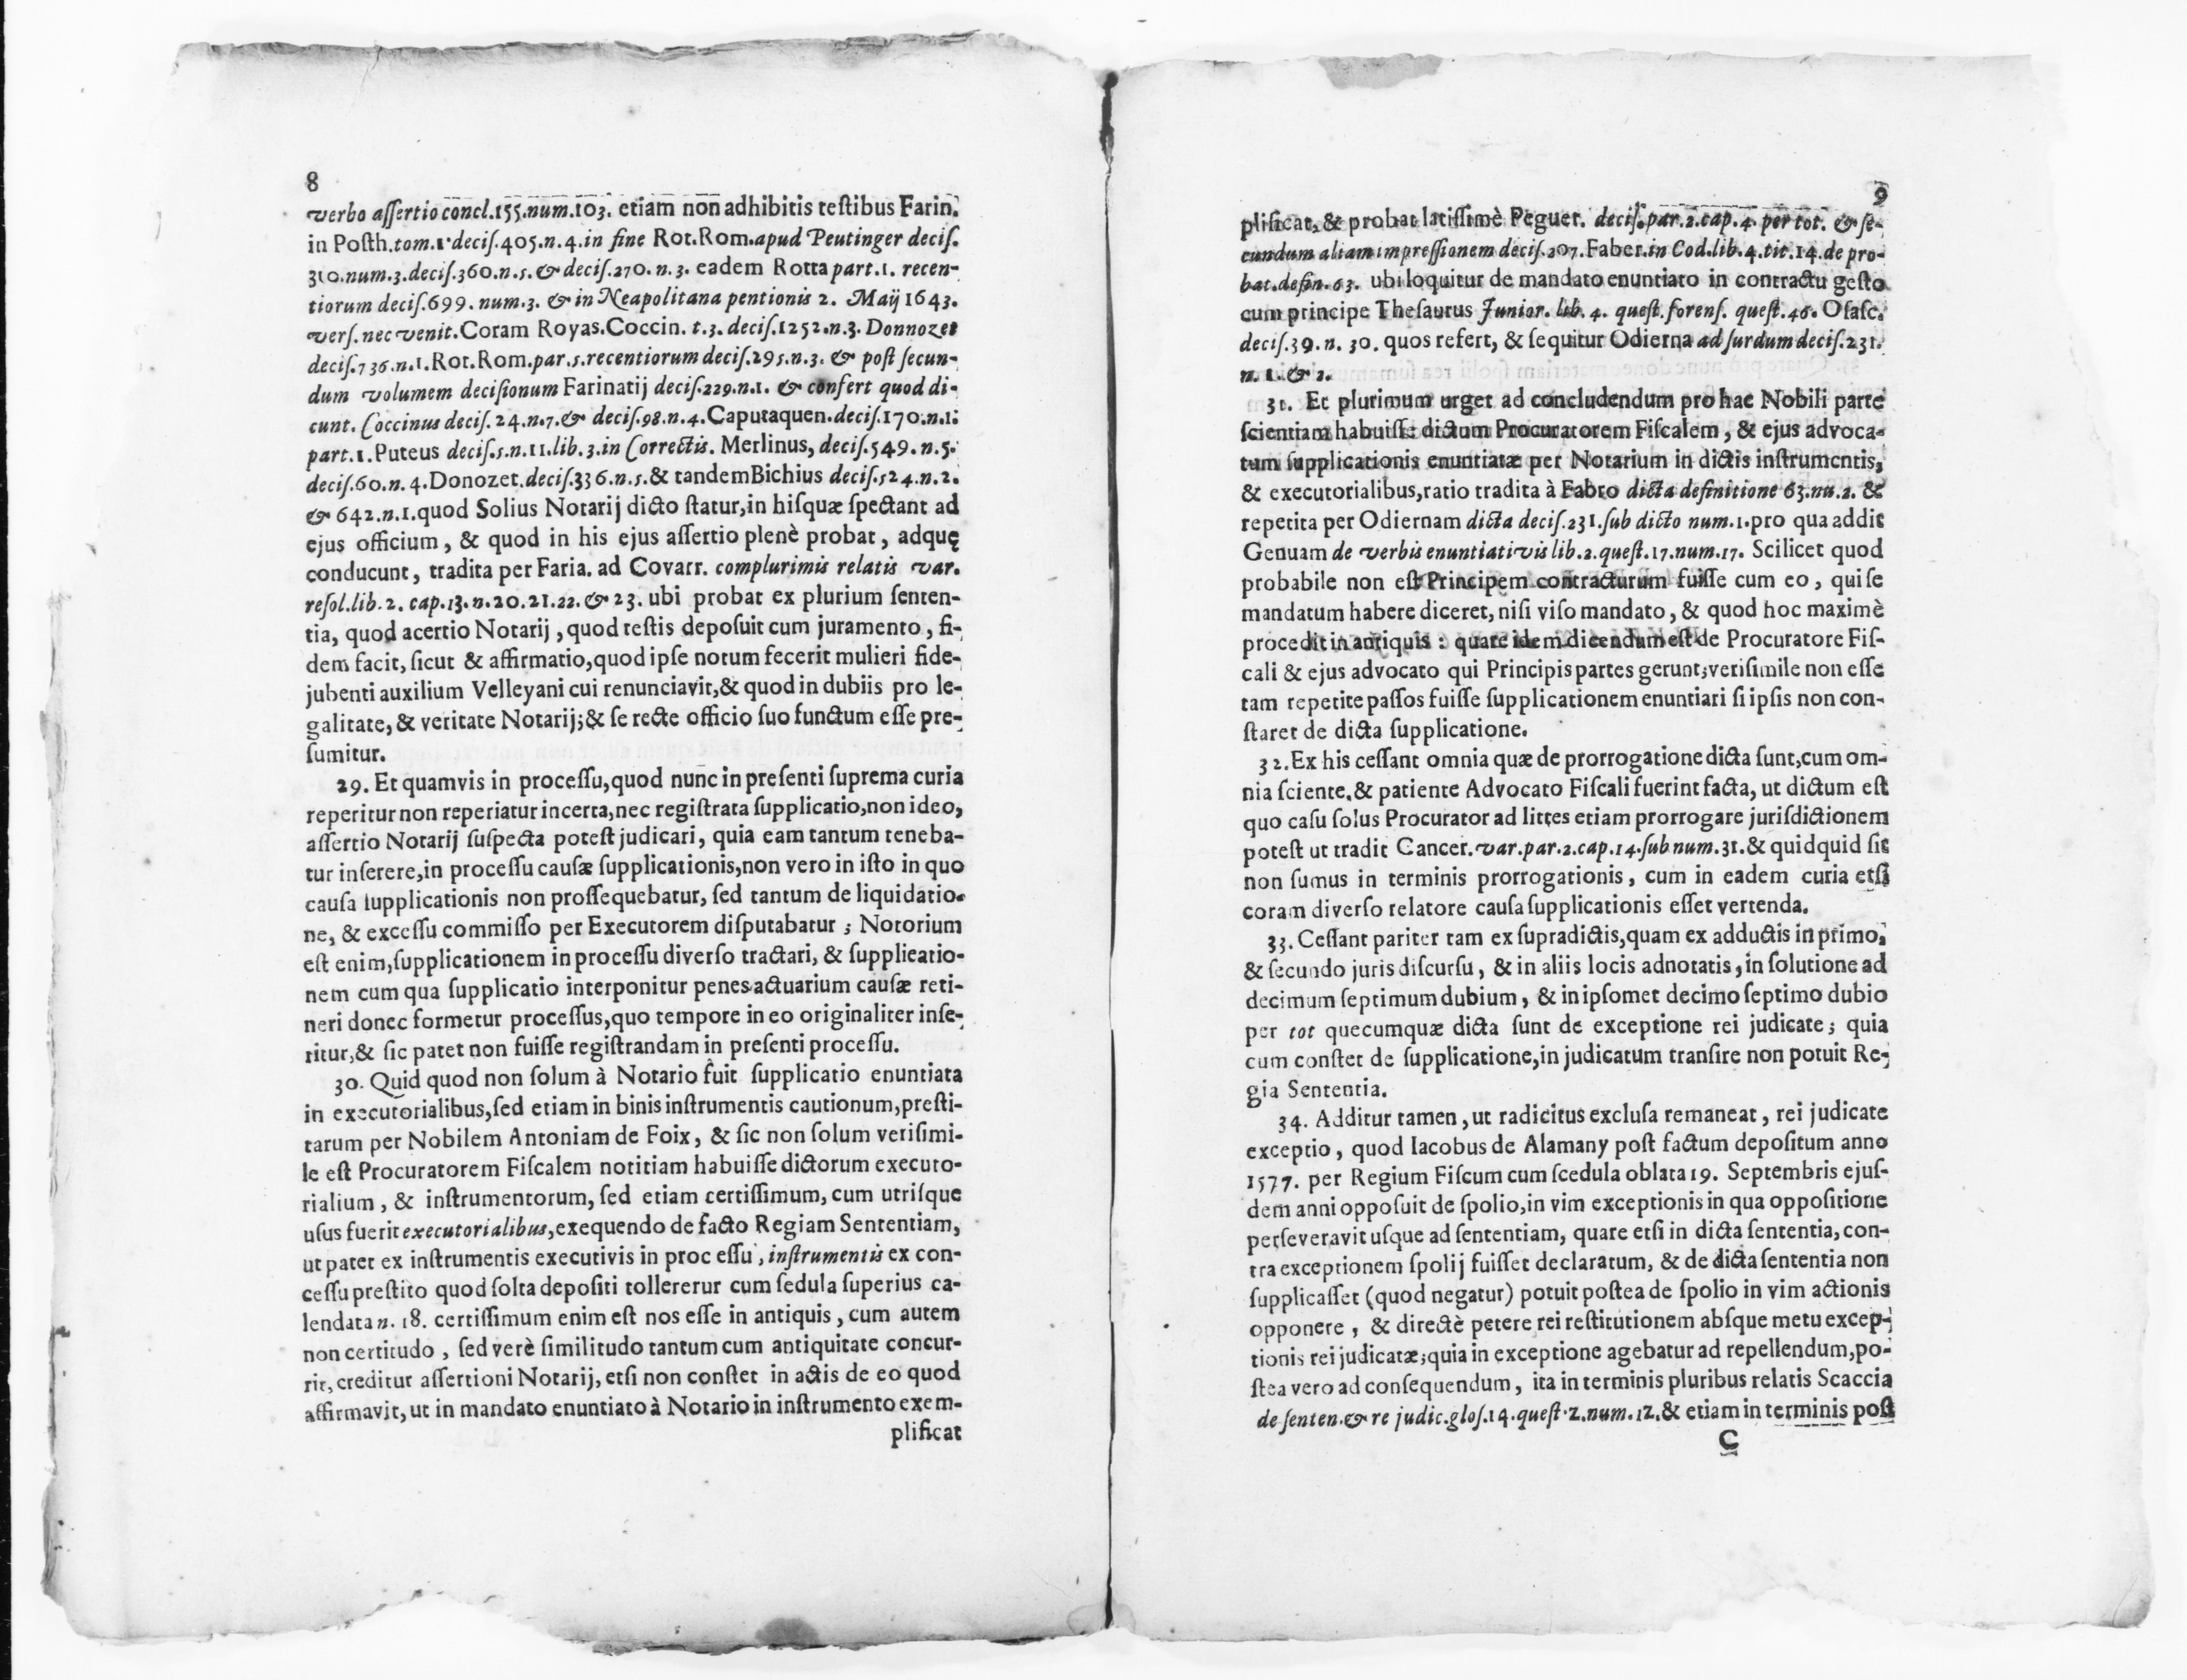 8
verbo aſſertio concl.155.num.103. etiam non adhibitis teſtibus Farin.
in Poſth.tom.1.deciſ.405.n.4.in fine Rot.Rom.apud Peutinger deciſ.
310.num.3.deciſ.360.n.5.& deciſ.270.n.3. eadem Rotta part.1. recen-
tiorum deciſ.699.num.3. & in Neapolitana pentionis 2. Maij 1643.
verſ.nec venit.Coram Royas.Coccin. t.3. deciſ.1252.n.3. Donnozet
deciſ.736.n.1.Rot.Rom.par.5.recentiorum deciſ.295.n.3. & poſt ſecun-
dum volumem deciſionum Farinatij deciſ.229.n.1. & confert quod di-
cunt. Coccinus deciſ.24.n.7.& deciſ.98.n.4.Caputaquen.deciſ.170.n.1.
part.1.Puteus deciſ.5.n.11.lib.3.in Correctis. Merlinus, deciſ.549.n.5.
deciſ.60.n.4.Donozet.deciſ.336.n.5.& tandem Bichius deciſ.524.n.2.
& 642.n.1.quod Solius Notarij dicto ſtatur,in hiſquæ ſpectant ad
ejus officium, & quod in his ejus aſſertio plenè probat, adquę
conducunt, tradita per Faria. ad Covarr. complurimis relatis var.
reſol.lib.2. cap.13.n.20.21.22.& 23. ubi probat ex plurium ſenten-
tia, quod acertio Notarij, quod teſtis depoſuit cum juramento, fi-
dem facit, ſicut & affirmatio,quod ipſe notum fecerit mulieri fide-
jubenti auxilium Velleyani cui renunciavit,& quod in dubiis pro le-
galitate, & veritate Notarij;& ſe recte officio ſuo functum eſſe pre-
ſumitur.
29. Et quamvis in proceſſu,quod nunc in preſenti ſuprema curia
reperitur non reperiatur incerta,nec regiſtrata ſupplicatio,non ideo,
aſſertio Notarij ſuſpecta poteſt judicari, quia eam tantum teneba-
tur inſerere,in proceſſu cauſæ ſupplicationis,non vero in iſto in quo
cauſa ſupplicationis non proſſequebatur, ſed tantum de liquidatio-
ne, & exceſſu commiſſo per Executorem diſputabatur; Notorium
eſt enim,ſupplicationem in proceſſu diverſo tractari, & ſupplieatio-
nem cum qua ſupplicatio interponitur penes actuarium cauſæ reti-
neri donec formetur proceſſus,quo tempore in eo originaliter inſe-
ritur,& ſic patet non fuiſſe regiſtrandam in preſenti proceſſu.
30. Quid quod non ſolum à Notario fuit ſupplicatio enuntiata
in executorialibus,ſed etiam in binis inſtrumentis cautionum,preſti-
tarum per Nobilem Antoniam de Foix, & ſic non ſolum veriſimi-
le eſt Procuratorem Fiſcalem notitiam habuiſſe dictorum executo-
rialium, & inſtrumentorum, ſed etiam certiſſimum, cum utriſque
uſus fuerit executorialibus,exequendo de facto Regiam Sententiam,
ut patet ex inſtrumentis executivis in proc eſſu, inſtrumentis ex con-
ceſſu preſtito quod ſolta depoſiti tollererur cum ſedula ſuperius ca-
lendata n. 18. certiſſimum enim eſt nos eſſe in antiquis, cum autem
non certitudo, ſed verè ſimilitudo tantum cum antiquitate concur-
rit, creditur aſſertioni Notarij, etſi non conſtet in actis de eo quod
affirmavit, ut in mandato enuntiato à Notario in inſtrumento exem-
plificat
9
plificat, & probat latiſſimè Peguer. deciſ.par.2.cap.4. per tot. & ſe-
cundum aliam impreſſionem deciſ.207.Faber.in Cod.lib.4.tit.14.de pro-
bat.defin.63. ubi loquitur de mandato enuntiato in contractu geſto
cum principe Theſaurus Junior. lib.4. queſt.forenſ. queſt.46. Oſaſc.
deciſ.39.n.30. quos refert, & ſequitur Odierna ad ſurdum deciſ.231.
n.1.& 2.
31. Et plurimum urget ad concludendum pro hac Nobili parte
ſcientiam habuiſſe dictum Procuratorem Fiſcalem, & ejus advoca-
tum ſupplicationis enuntiatæ per Notarium in dictis inſtrumentis,
& executorialibus,ratio tradita à Fabro dicta definitione 63.nu.2. &
repetita per Odiernam dicta deciſ.231.ſub dicto num.1.pro qua addit
Genuam de verbis enuntiativis lib.2.queſt.17.num.17. Scilicet quod
probabile non eſt Principem contracturum fuiſſe cum eo, qui ſe
mandatum habere diceret, niſi viſo mandato, & quod hoc maximè
procedit in antiquis: quare idem dicendum eſt de Procuratore Fiſ-
cali & ejus advocato qui Principis partes gerunt;veriſimile non eſſe
tam repetite paſſos fuiſſe ſupplicationem enuntiari ſi ipſis non con-
ſtaret de dicta ſupplicatione.
32.Ex his ceſſant omnia quæ de prorrogatione dicta ſunt,cum om-
nia ſciente,& patiente Advocato Fiſcali fuerint facta, ut dictum eſt
quo caſu ſolus Procurator ad littes etiam prorrogare juriſdictionem
poteſt ut tradit Cancer.var.par.2.cap.14.ſub num.31.& quidquid ſit
non ſumus in terminis prorrogationis, cum in eadem curia etſi
coram diverſo relatore cauſa ſupplicationis eſſet vertenda.
33. Ceſſant pariter tam ex ſupradictis,quam ex adductis in primo,
& ſecundo juris diſcurſu, & in aliis locis adnotatis, in ſolutione ad
decimum ſeptimum dubium, & in ipſomet decimo ſeptimo dubio
per tot quecumquæ dicta ſunt de exceptione rei judicate; quia
cum conſtet de ſupplicatione,in judicatum tranſire non potuit Re-
gia Sententia.
34. Additur tamen, ut radicitus excluſa remaneat, rei judicate
exceptio, quod Iacobus de Alamany poſt factum depoſitum anno
1577. per Regium Fiſcum cum ſcedula oblata 19. Septembris ejuſ-
dem anni oppoſuit de ſpolio,in vim exceptionis in qua oppoſitione
perſeveravit uſque ad ſententiam, quare etſi in dicta ſententia, con-
tra exceptionem ſpolij fuiſſet declaratum, & de dicta ſententia non
ſupplicaſſet (quod negatur) potuit poſtea de ſpolio in vim actionis
opponere, & directè petere rei reſtitutionem abſque metu excep-
tionis rei judicatæ;quia in exceptione agebatur ad repellendum,po-
ſtea vero ad conſequendum, ita in terminis pluribus relatis Scaccia
de ſenten.& re judic.gloſ.14.queſt.2.num.12.& etiam in terminis poſt
C